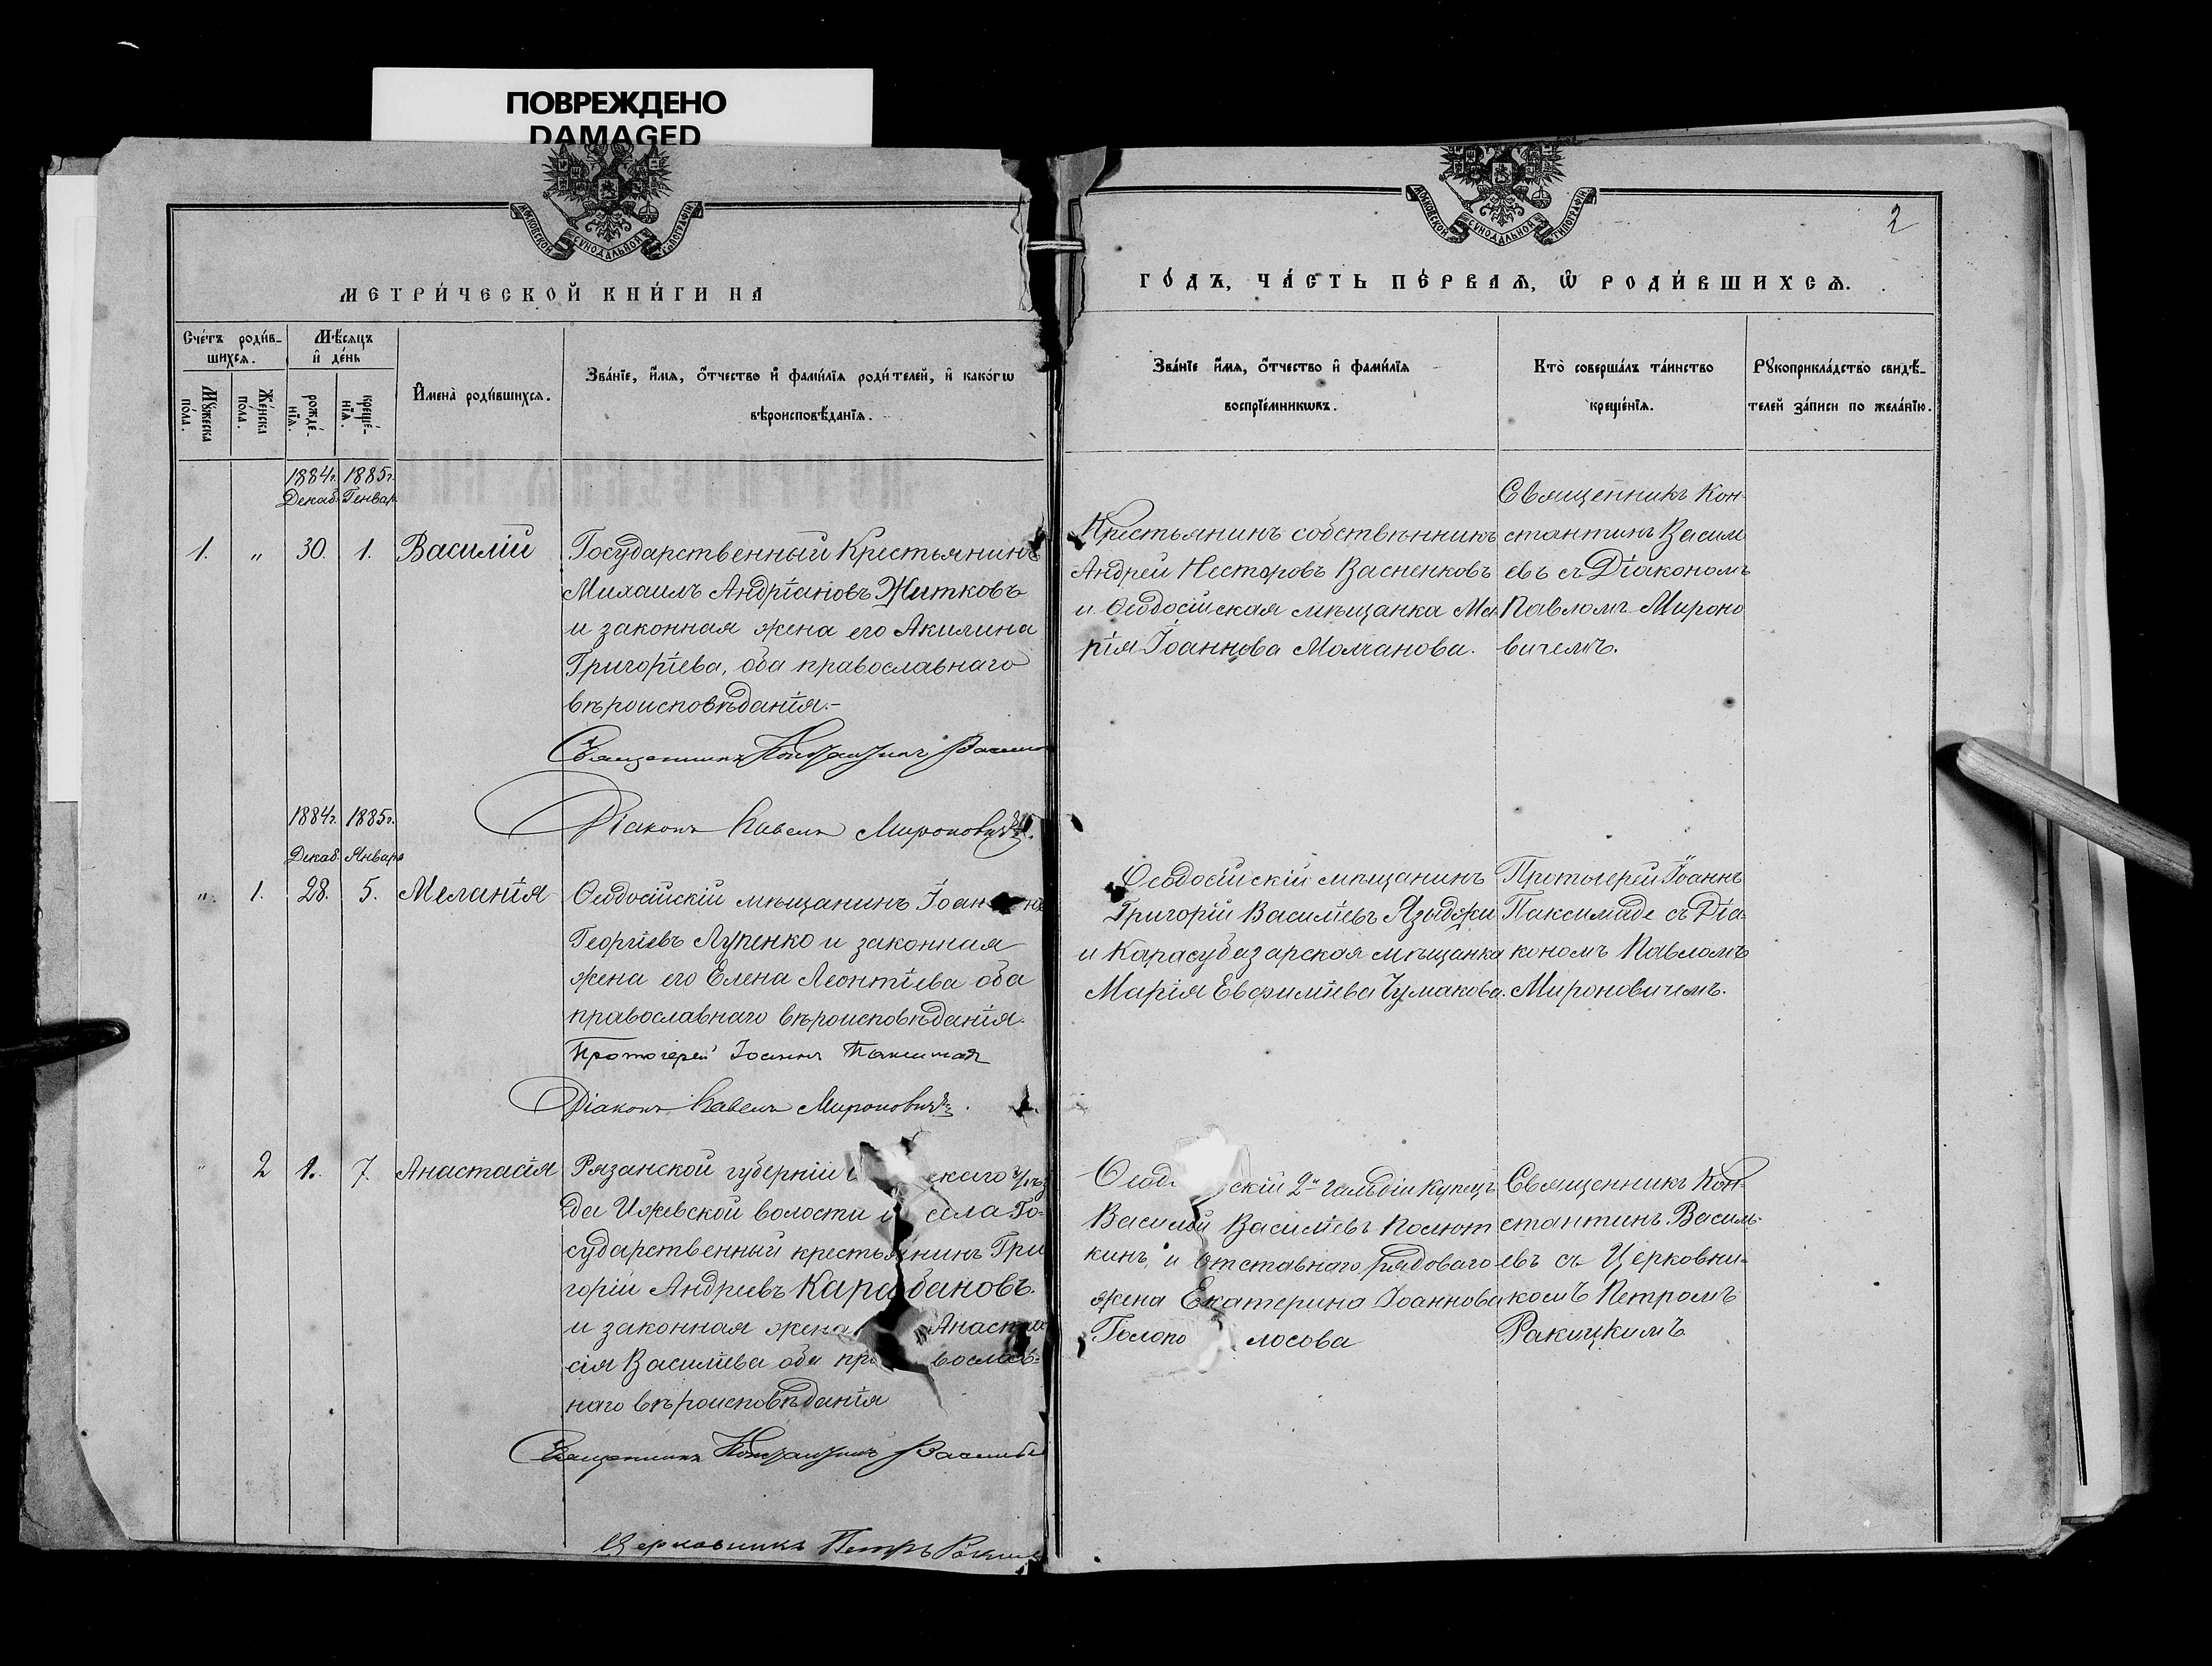 ПОВРЕЖДЕНО
DAMAGED
МОСКОВСКОЙ СѴНОДАЛЬНОЙ ТИПОГРАФІИ
МОСКОВСКОЙ СѴНОДАЛЬНОЙ ТИПОГРАФІИ
2
МЕТРИ́ЧЕСКОЙ КНИ́ГИ НА
ГО́ДЪ, ЧА́СТЬ ПЕ́РВАѦ, Ѿ РОДИ́ВШИХСѦ.
Сче́тъ роди́в-
шихсѧ.
Мꙋ́жеска
по́ла.
Же́нска
по́ла.
Мѣ́сѧцъ
и҆ де́нь
рожде́-
нїѧ.
креще́-
нїѧ.
И҆мена̀ роди́вшихсѧ.
Зва́нїе, и҆́мѧ, ѻ҆́тчество и҆ фами́лїѧ роди́телей, и҆ како́гѡ
вѣроисповѣ́данїѧ.
Зва́нїе и҆́мѧ, ѻ҆́тчество и҆ фами́лїѧ
воспрїе́мникѡвъ.
Кто̀ соверша́лъ та́инство
креще́нїѧ.
Рꙋкоприкла́дство свидѣ́-
телей за́писи по жела́нїю.
1884г. 1885г.
Декаб. Генвар.
1. " 30. 1. Василій
Государственный Крестьянинъ
Михаилъ Андріановъ Житковъ
и законная жена его Акилина
Григоріева, оба православнаго
вѣроисповѣданія.-
Священникъ Константинъ
Діаконъ Павелъ Мироновичъ.
Крестьянинъ собственникъ
Андрей Несторовъ Васненковъ
и Ѳеодосійская мѣщанка Ма
рія Іоаннова Молчанова.
Священникъ Кон-
стантинъ Василь
евъ съ Діакономъ
Павломъ Мироно
вичемъ.
1884г. 1885г.
Декаб. Январь
" 1. 28. 5. Меланія
Ѳеодосійскій мѣщанинъ
Георгіевъ Лупенко и законная
жена его Елена Леонтіева оба
православнаго вѣроисповѣданія.
Протоіерей Іоаннъ
Діаконъ Павелъ Мироновичъ.
Ѳеодосійскій мѣщанинъ
Григорій Василіевъ Языджи
и Карасубазарская мѣщанка
Марія Евфиміева Чумакова.
Протоіерей Іоаннъ
Паксимаде съ Діа-
кономъ Павломъ
Мироновичемъ.
" 2 1. 7. Анастасія
Рязанской губерніи
да Ижевской волости села Го-
сударственный крестьянинъ Гри
горій Андреевъ Карабановъ.
и законная жена Анаста
сія Василіева оба православ-
наго вѣроисповѣданія
Священникъ Константинъ
Церковникъ Петръ
2й гильдіи купецъ
Василій Василіевъ Полют
кинъ, и отставнаго рядоваго
жена Екатерина Іоаннова
Священникъ Кон-
стантинъ Василь-
евъ съ Церковни-
комъ Петромъ
Ракицкимъ